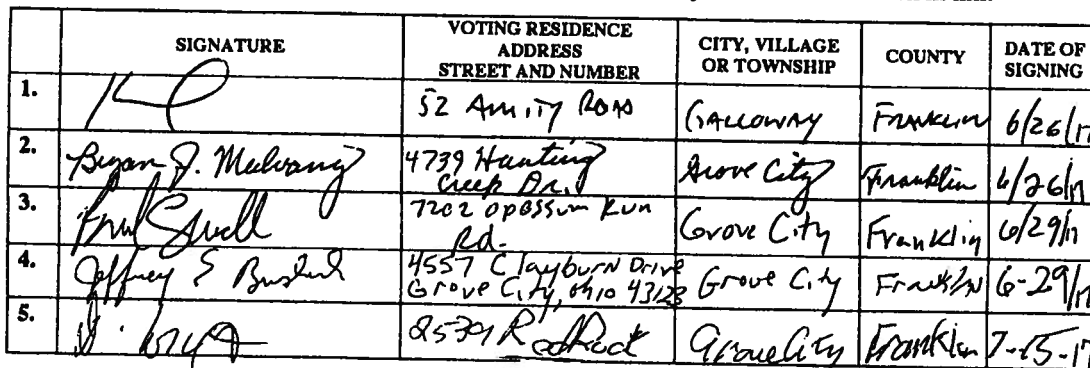 SIGNATURE VOTING RESIDENCE ADDRESS STREET AND NUMBER CITY, VILLAGE OR TOWNSHIP COUNTY DATE OF SIGNING
1. 52 Amity Road Galloway Franklin 6/26/17
2. Bryan J. Mulvany 4739 Hunting Creek Dr. Grove City Franklin 6/26/17
3. 7202 Opossum Run Rd. Grove City Franklin 6/29/17
4. Jeffrey S 4557 Clayburn Drive Grove City, Ohio 43123 Grove City Franklin 6-29/17
5. Grove City Franklin 7-15-17